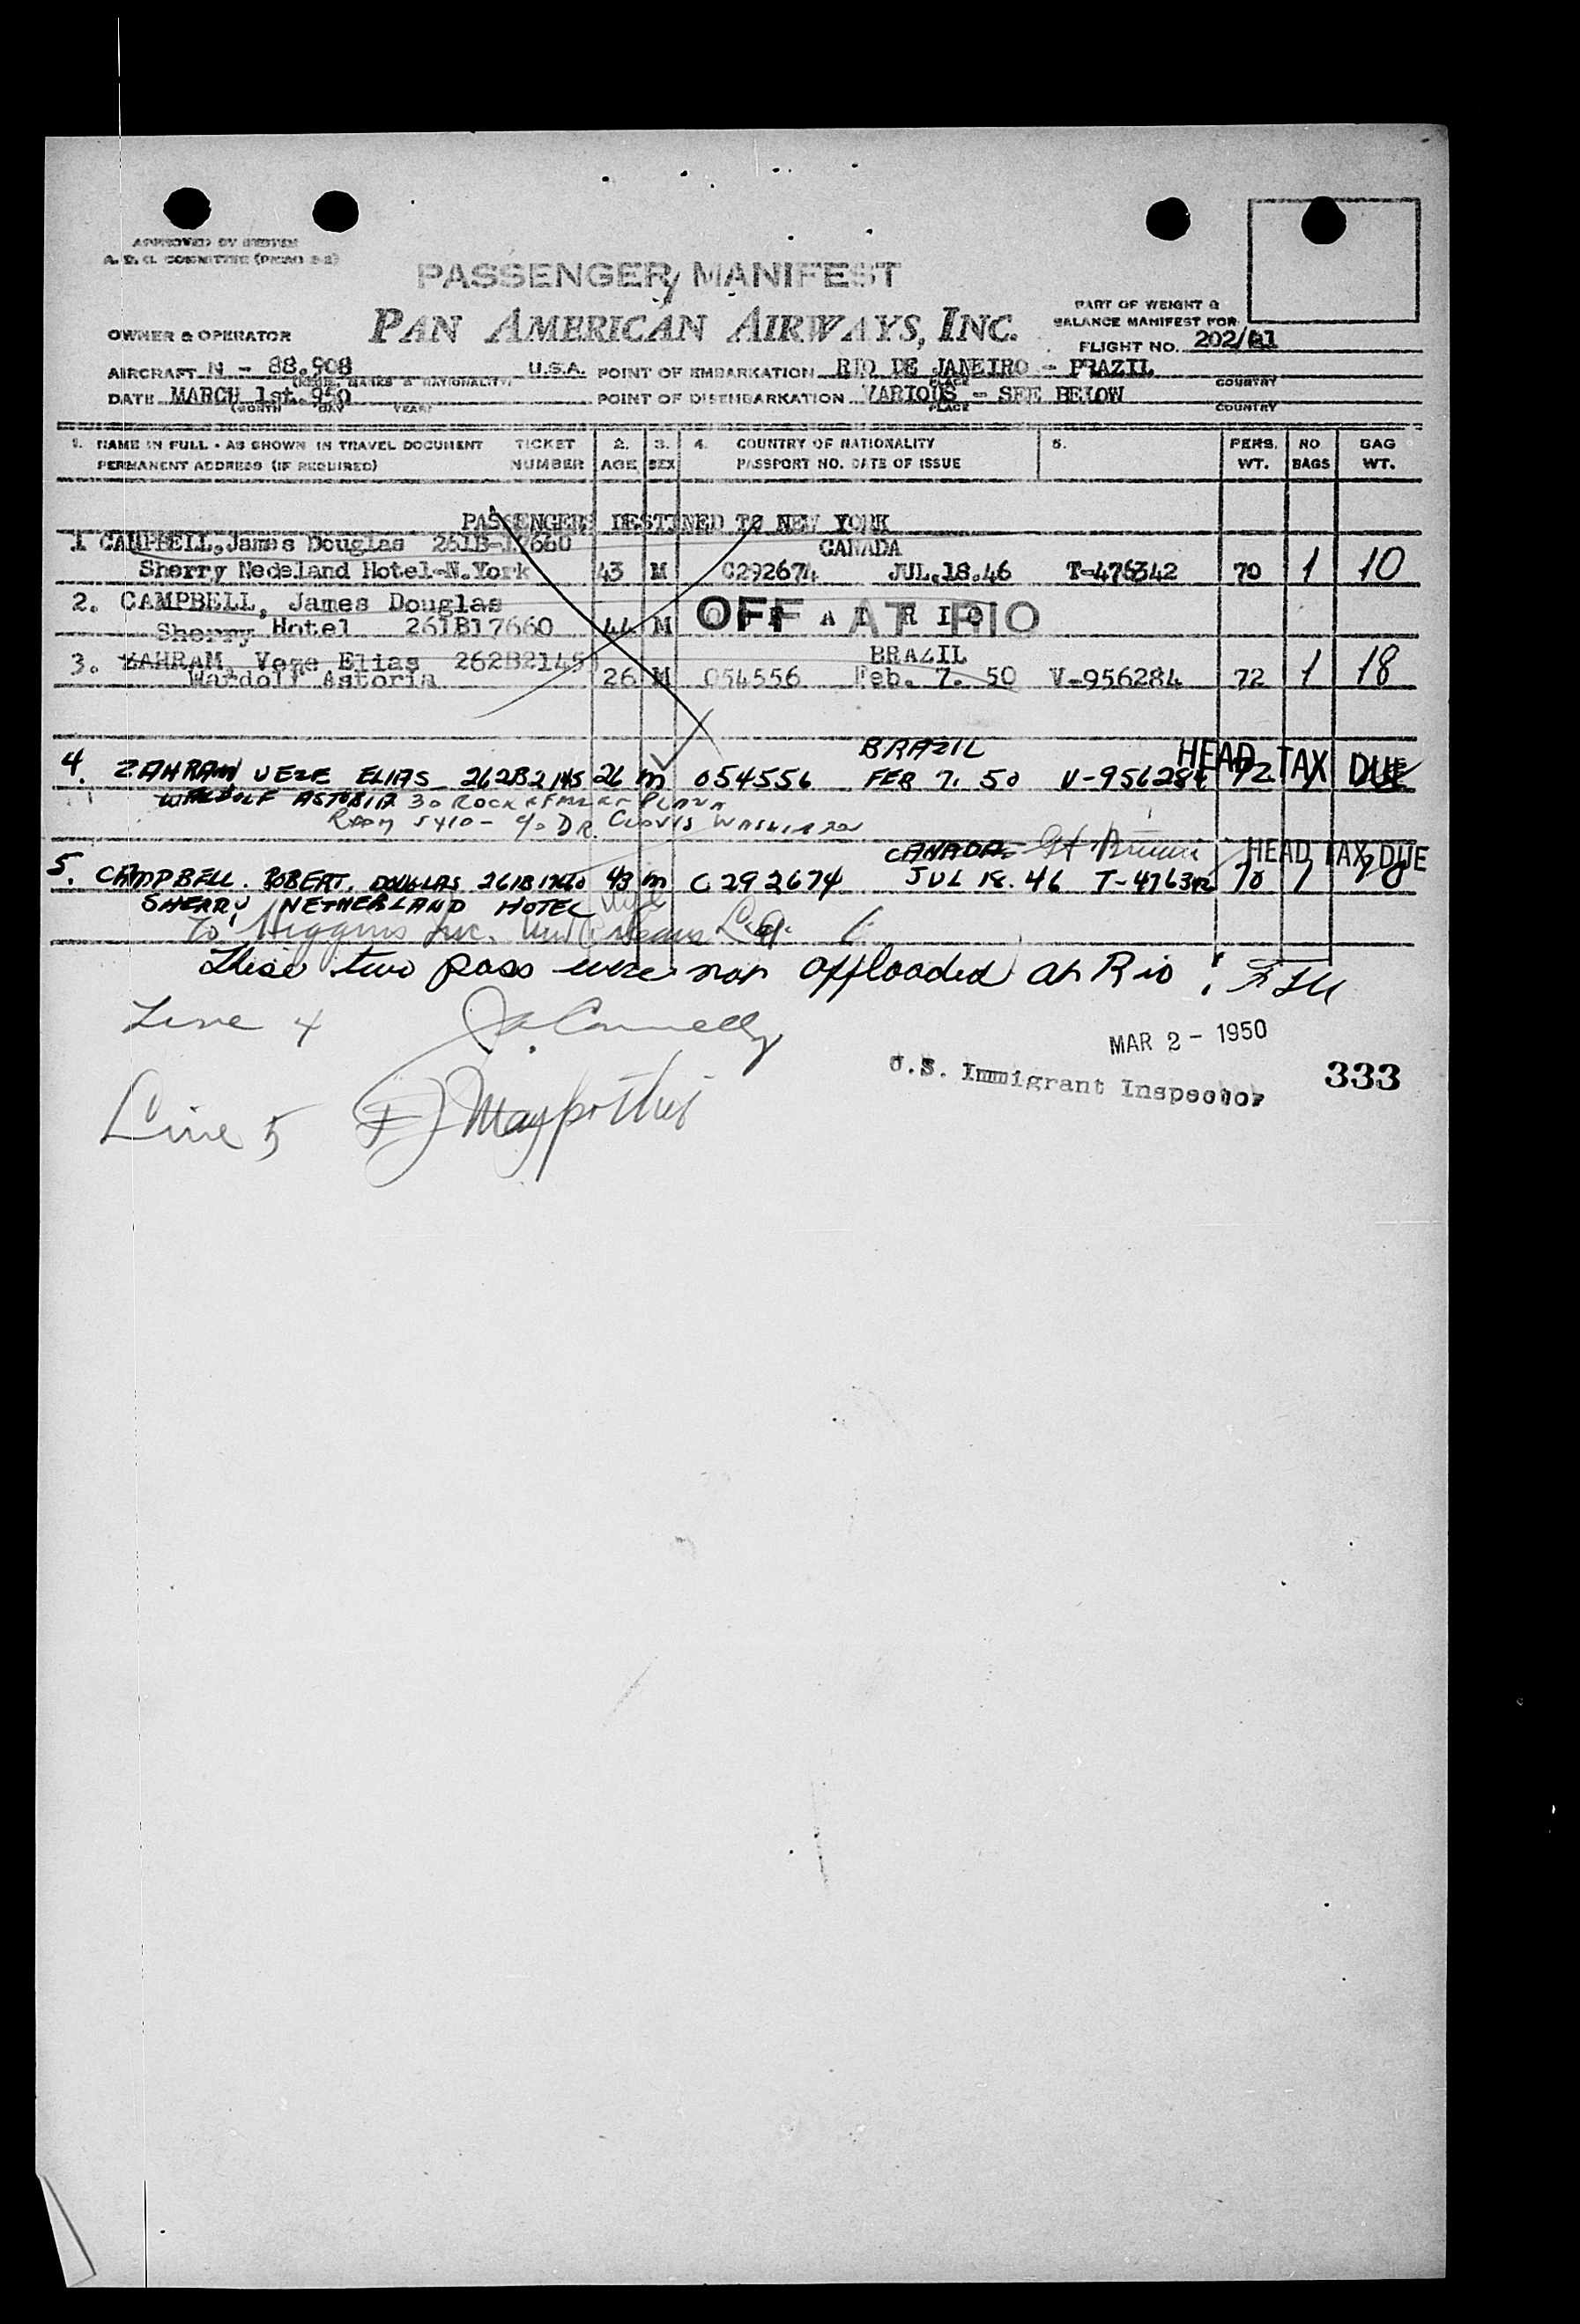 APPROVED BY
PASSENGER MANIFEST
PAN AMERICAN AIRWAYS, INC.
PART OF WEIGHT &
BALANCE MANIFEST FOR
OWNER & OPERATOR
FLIGHT NO. 202/
AIRCRAFT N - 88.908 U.S.A. POINT OF EMBARKATION RIO DE JANEIRO - BRAZIL
(MARKS & NATIONALITY) PLACE COUNTRY
DATE MARCH 1st.950 POINT OF DISEMBARKATION VARIOUS - SEE BELOW
(MONTH DAY YEAR) PLACE COUNTRY
1. NAME IN FULL - AS SHOWN IN TRAVEL DOCUMENT TICKET 2. 3. 4. COUNTRY OF NATIONALITY 5. PERS. NO. BAG
PERMANENT ADDRESS (IF REQUIRED) NUMBER AGE SEX PASSPORT NO. DATE OF ISSUE WT. BAGS WT.
PASSENGERS DESTINED TO NEW YORK
1 CAMPBELL,James Douglas 261B-17660 CANADA
Sherry Nedeland Hotel-N.York 43 M C292674 JUL.18.46 T-476342 70 1 10
2. CAMPBELL, James Douglas OFF AT RIO
Sherry Hotel 261B17660 44 M
3. ZAHRAM, Veze Elias 262B2145 BRAZIL
Wardolf Astoria 26 M 054556 Feb. 7. 50 V-956284 72 1 18
BRAZIL HEAD TAX DUE
4. ZAHRAM VEZE ELIAS 262B2145 26 M 054556 FEB 7. 50 V-956284 72
WALDOLF ASTORIA 30 ROCKEFELLER PLAZA
ROOM 5410 - c/o DR. CLOVIS WASHINGTON
CANADA HEAD TAX DUE
5. CAMPBELL. ROBERT. DOUGLAS 261B17660 43 M C 292674 JUL 18. 46 T-476342 70 1
SHERRY NETHERLAND HOTEL
To Higgins Inc. New Orleans La.
These two pass were not offloaded at Rio
Line 4 Connelly
MAR 2 - 1950
U.S. Immigrant Inspector
333
Line 5